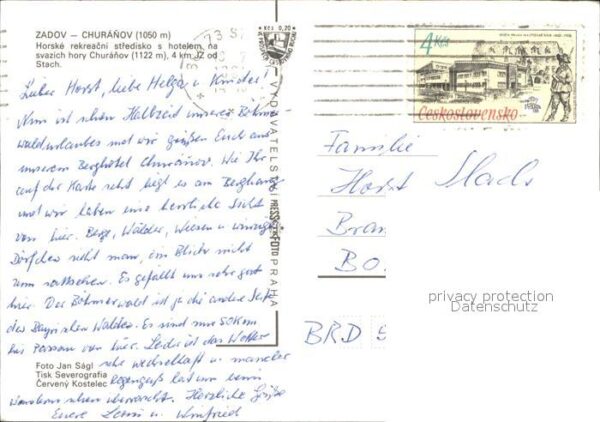 ZADOV – CHURÁŇOV (1050 m)
Horské rekreační středisko s hotelem, na
svazích hory Churáňov (1122 m), 4 km JZ od
Stach.
Lieber Horst, liebe Helga u. Kinder!
Nun ist schon Halbzeit unseres Böhmer-
waldurlaubes und wir grüßen Euch aus
unserem Berghotel Churáňov. Wie Ihr
auf der Karte seht liegt es am Berghang
und wir haben eine herrliche Sicht
von hier. Berge, Wälder, Wiesen u. winzige
Dörfchen sieht man, ein Blick nicht
zum sattsehen. Es gefällt uns sehr gut
hier. Der Böhmerwald ist ja die andere Seite
des Bayrischen Waldes. Es sind nur 50km
bis Passau von hier. Leider ist das Wetter
sehr wechselhaft u. mancher
Regenguß hat uns beim
Wandern schon überrascht. Herzliche Grüße
Eure u. Winfried
Foto Jan Ságl
Tisk Severografia
Červený Kostelec
Kčs 0,70
VYDAVATELSTVÍ PRESSFOTO PRAHA
73
4 Kčs
Československo
Familie
Horst
Bran
BO
BRD
privacy protection
Datenschutz